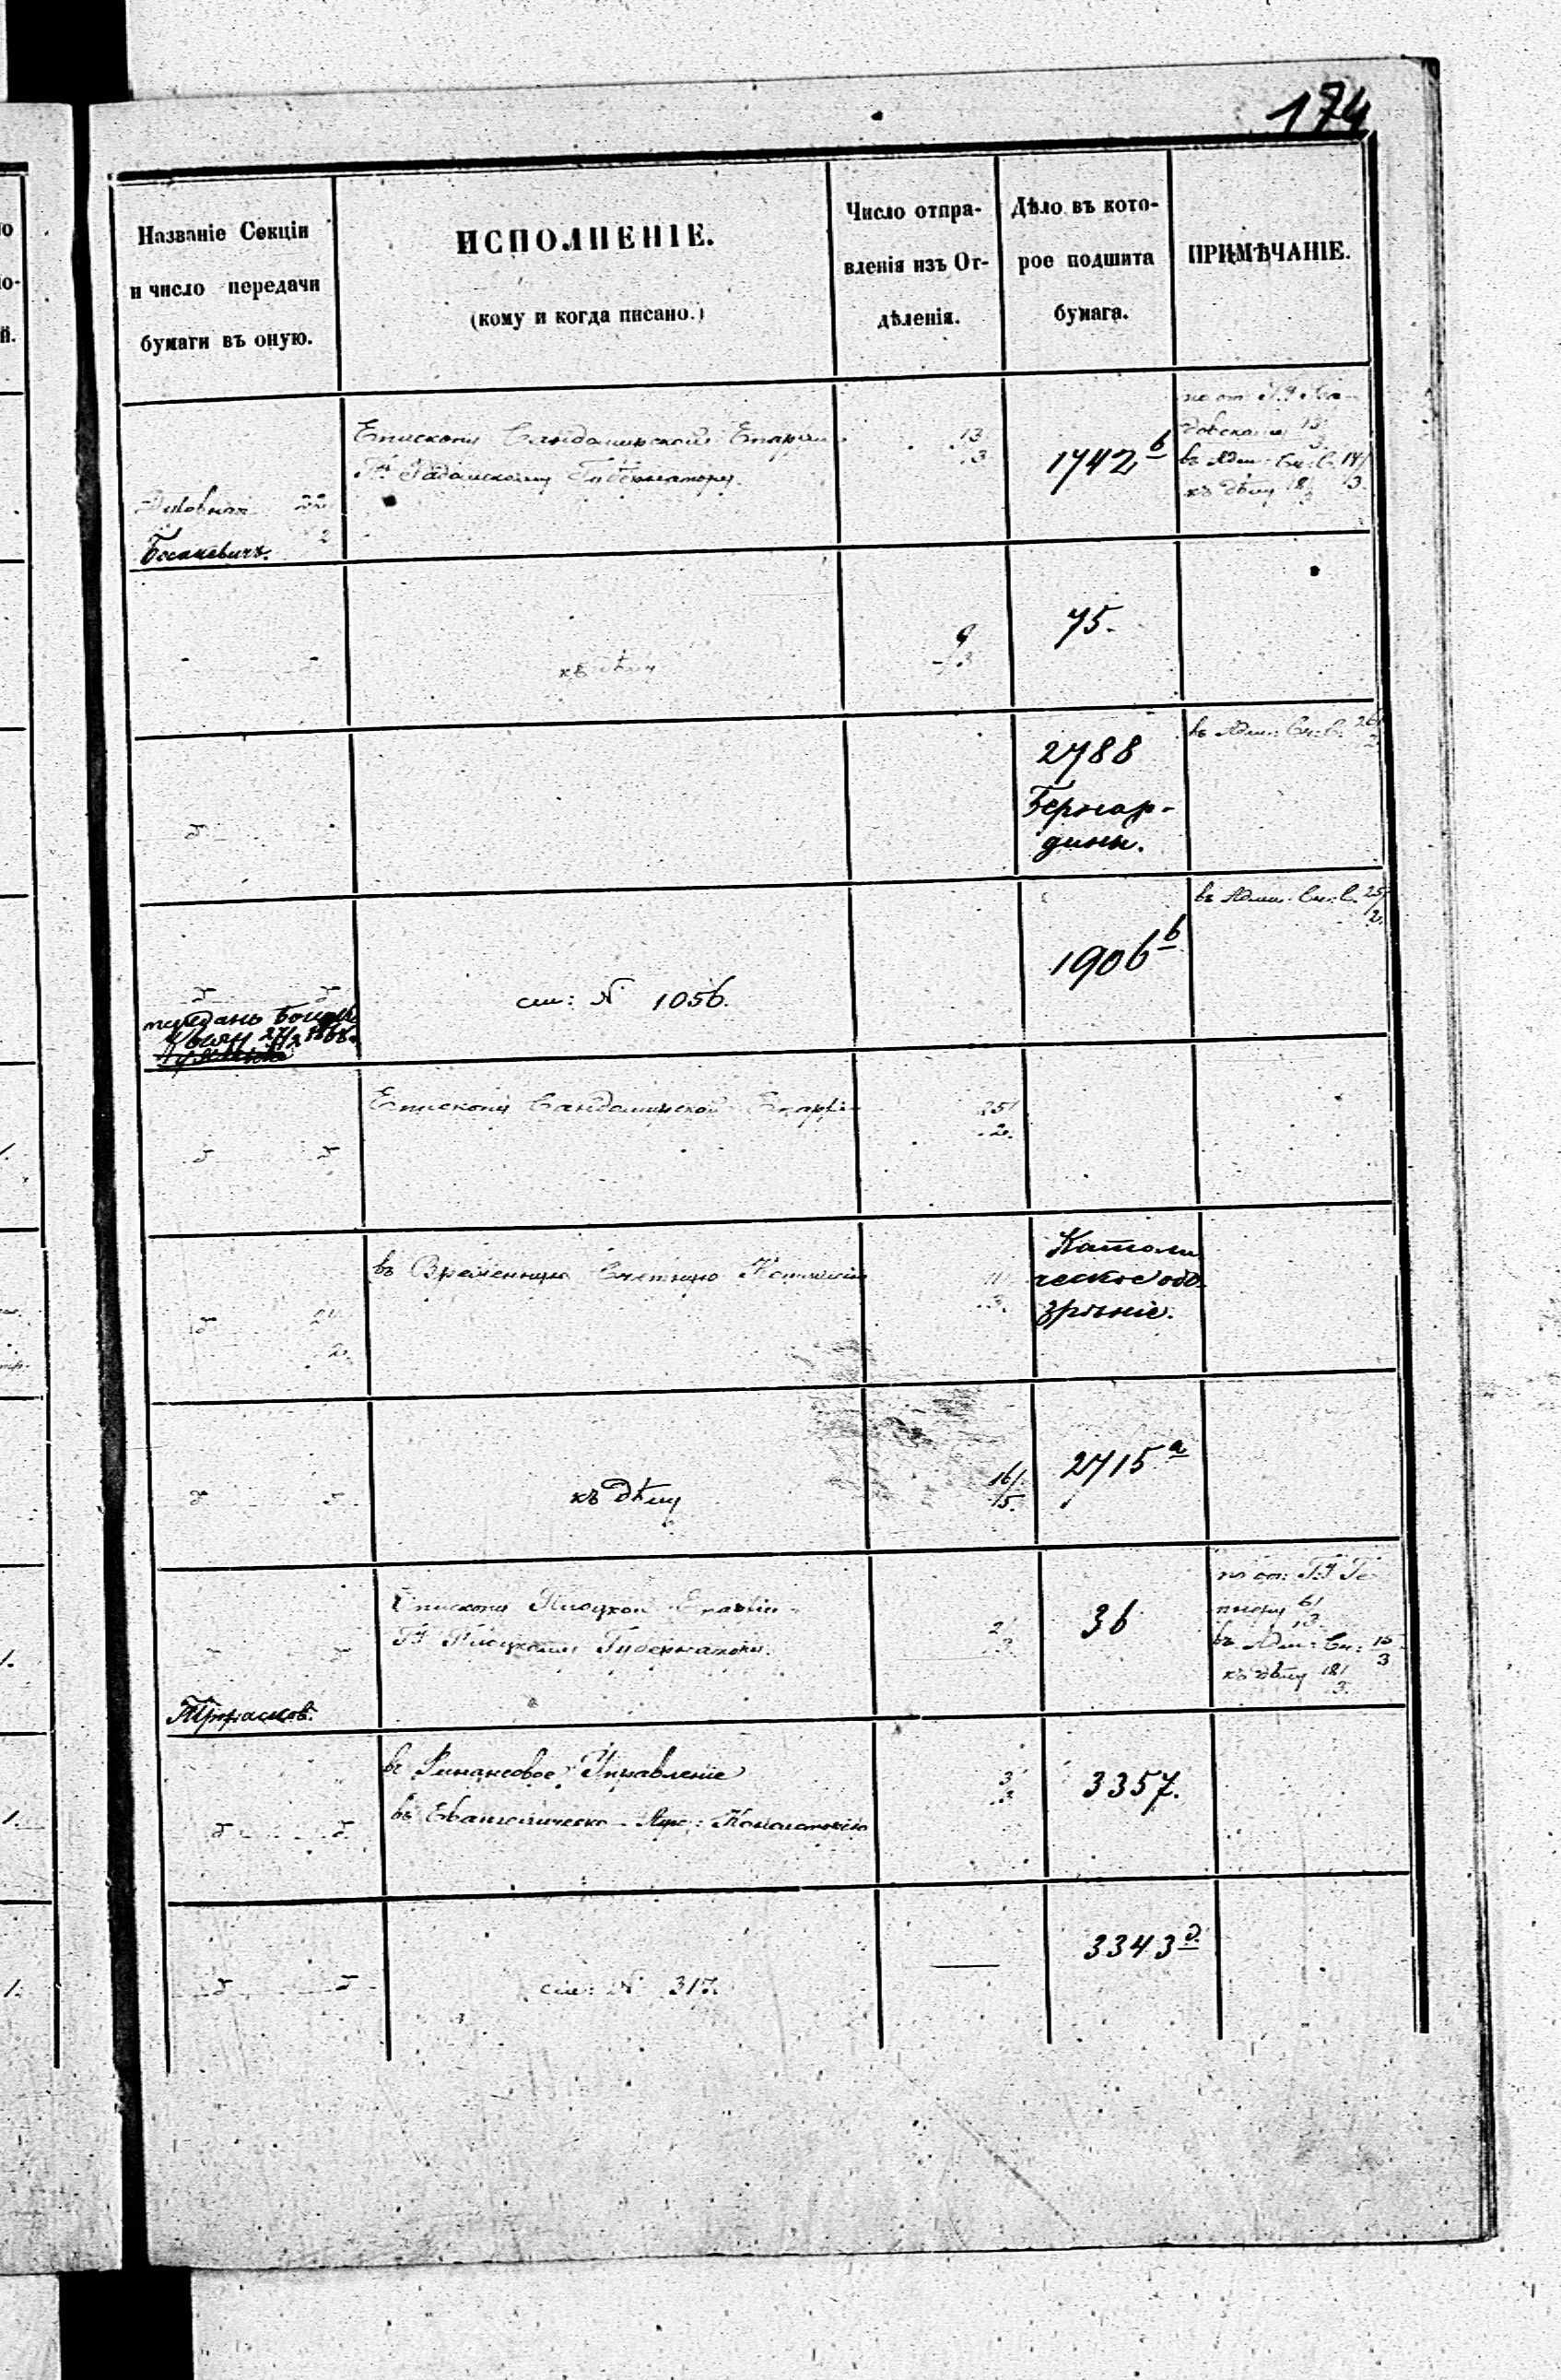 174
Названіе Секціи
и число передачи
бумаги въ оную.
ИСПОЛНЕНІЕ.
(кому и когда писано.)
Число отпра-
вленія изъ От-
дѣленія.
Дѣло въ кото-
рое подшита
бумага.
ПРИМѢЧАНІЕ.
Духовная 22
2
Епископу Сандомирской Епархіи
Гну Радомскому Губернатору.
13/
3
1742 b
13/
3
въ Адм. Сч: С. 14/
3.
къ дѣлу 18/
3
къ дѣлу
9
3
75.
2788
Бернар-
дины.
въ Адм: Сч: С. 26/
2
см: N 1056.
1906 b
въ Адми. Сч: С. 25/
2.
переданъ
27/2
Епископу Сандомирской Епархіи
25/
2.
2/
2.
въ Временную Счетную Коммисію
11/
3.
Католи
ческое обо-
зрѣніе.
къ дѣлу
16/
5.
2715 a
Епископу Плоцкой Епархіи
Гу Плоцкому Губернатору.
2/
3.
36
6/
3
въ Адм: Сч: 15
3
къ дѣлу 18/
3.
въ Финансовое Управленіе
въ Евангелическо-Аугс: Консисторію
3/
3
3357.
см: N 317.
—
3343 д.